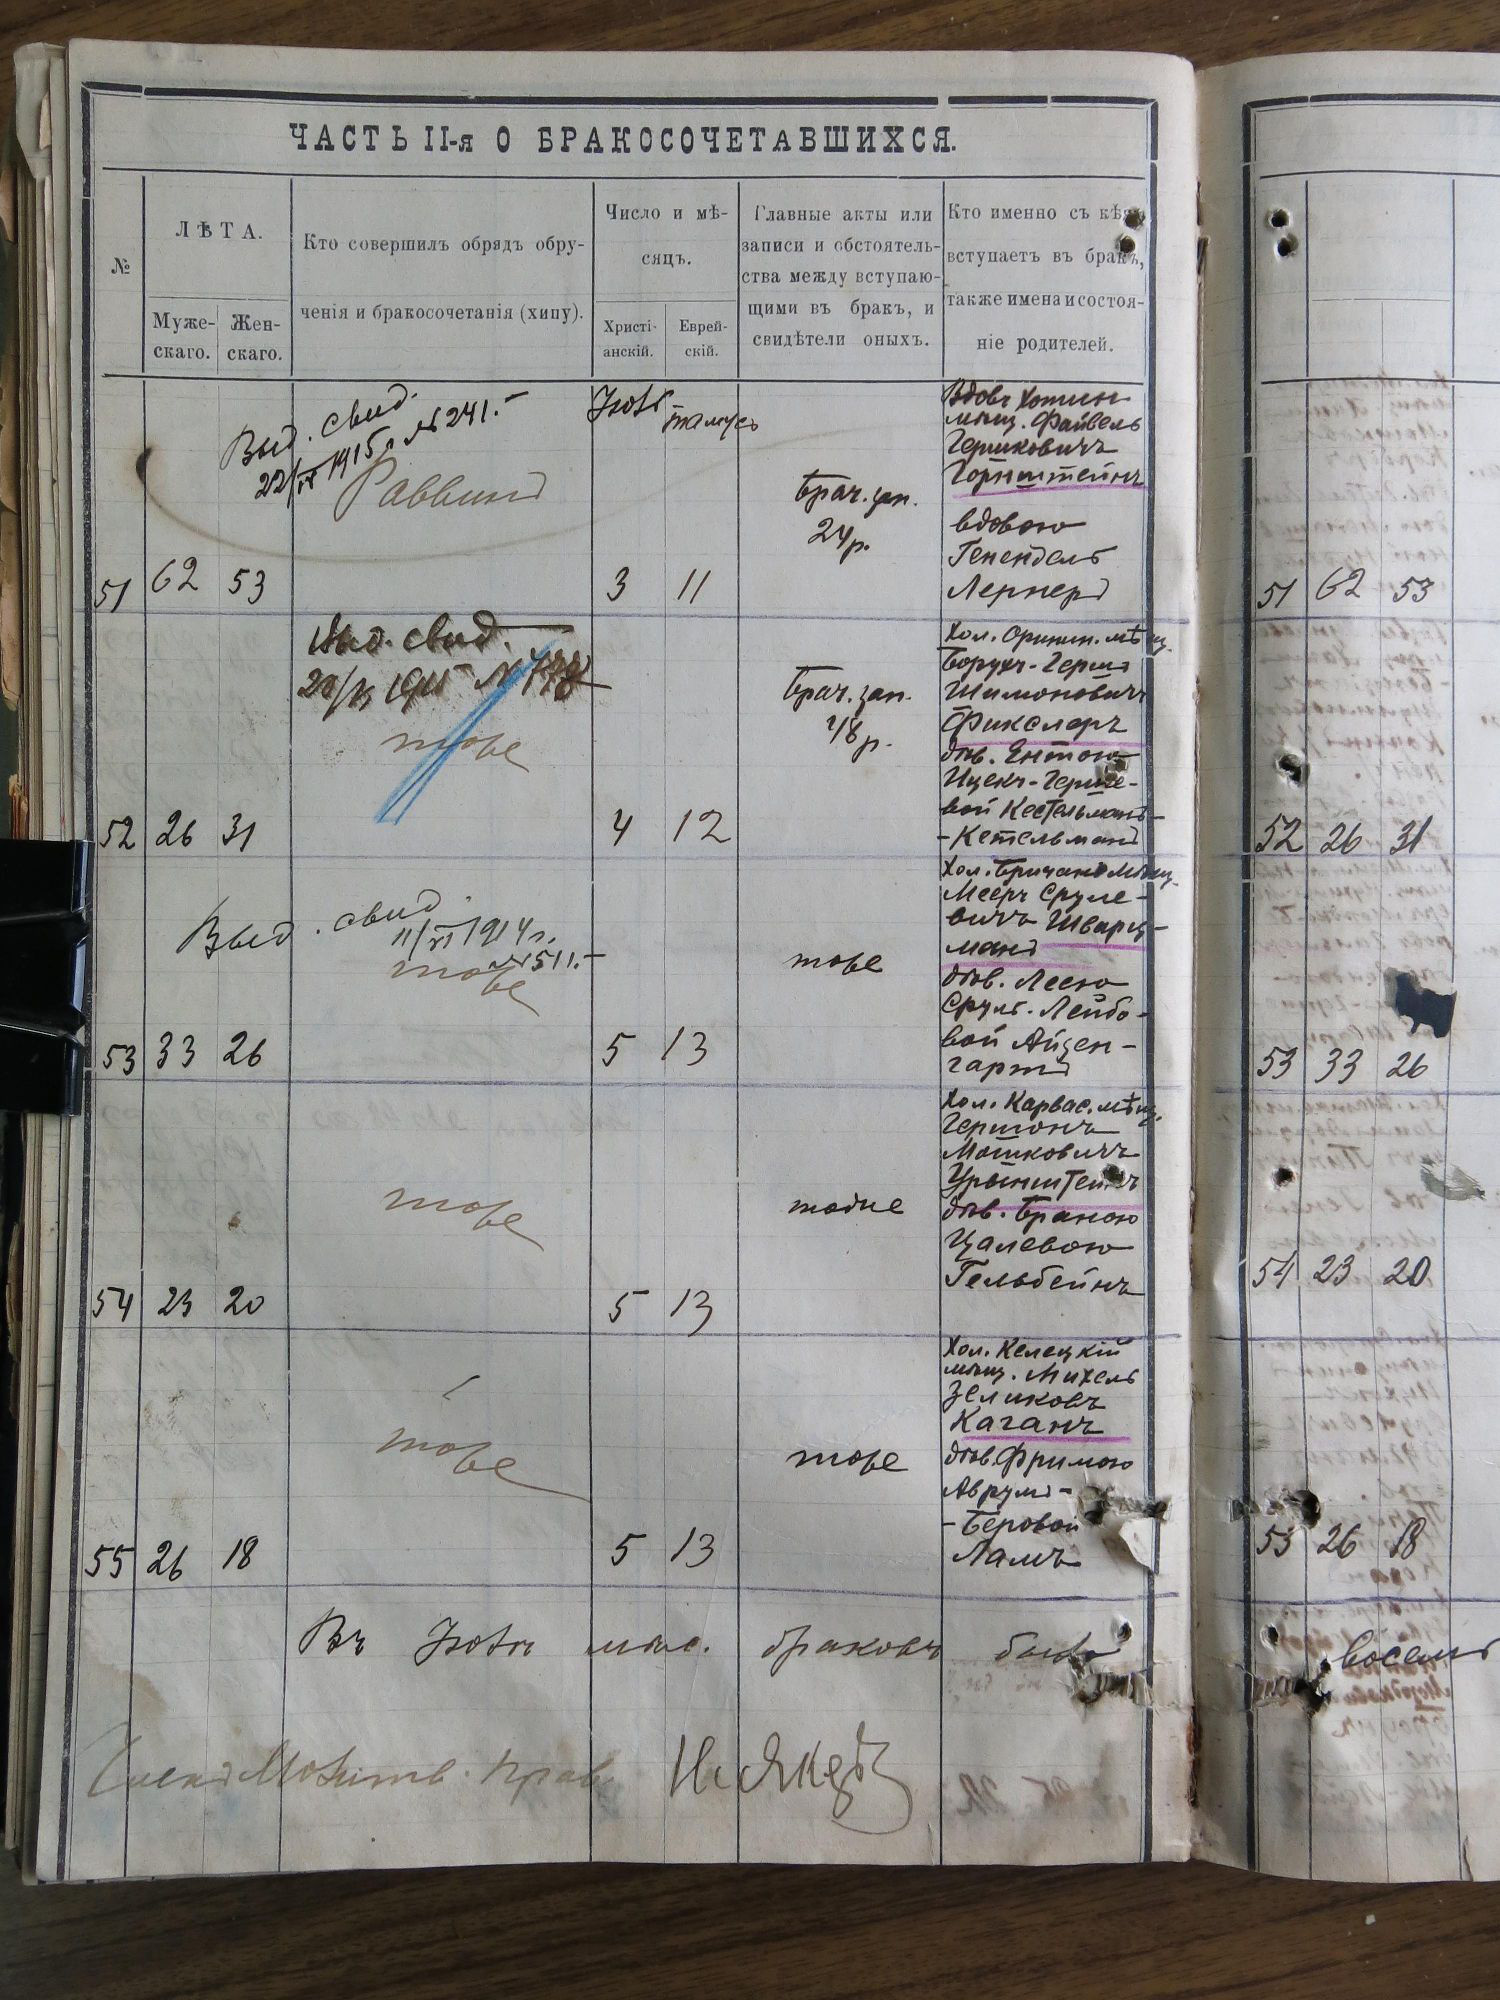 ЧАСТЬ II-я О БРАКОСОЧЕТАВШИХСЯ.
№
ЛѢТА.
Муже-
скаго.
Жен-
скаго.
Кто совершилъ обрядъ обру-
ченія и бракосочетанія (хипу).
Число и мѣ-
сяцъ.
Христі-
анскій.
Еврей-
скій.
Главные акты или
записи и обстоятель-
ства между вступаю-
щими въ бракъ, и
свидѣтели оныхъ.
Кто именно съ кѣмъ
вступаетъ въ бракъ,
также имена и состоя-
ніе родителей.
Выд. свид.
22/ 1915 г. № 241.-
Раввинъ
Іюль
тамузъ
Брач. зап.
24 р.
Вдовъ Хотин.
мѣщ. Файвель
Гершковичъ
Горнштейнъ
вдовою
Генендель
Лернеръ
51 62 53 3 11
Выд. свид.
тоже
Брач. зап.
48 р.
Хол. Оргин. мѣщ.
Борухъ-Гершъ
Шимоновичъ
Фикслеръ
дѣв. Ентою
Ицекъ-Герше-
вой Кестельманъ-
-Кетельманъ
52 26 31 4 12
Выд. свид.
11/VI 1914 г.
№ 511.-
тоже
тоже
Хол. Бричанс. мѣщ.
Мееръ Сруле-
вичъ Шварц-
манъ
дѣв. Леею
Сруль-Лейбо-
вой Айзен-
гартъ
53 33 26 5 13
тоже
тоже
Хол. Карвас. мѣщ.
Гершонъ
Мошковичъ
Урынштейнъ
дѣв. Браною
Цалевою
Гельбейнъ
54 23 20 5 13
тоже
тоже
Хол. Келецкій
мѣщ. Михель
Зеликовъ
Каганъ
дѣв. Фримою
Аврумъ-
-Беровой
Ламъ
55 26 18 5 13
Въ Іюлѣ мѣс. браковъ было
Членъ Молитв. Прав.
51 62 53
52 26 31
53 33 26
54 23 20
55 26 18
восемь